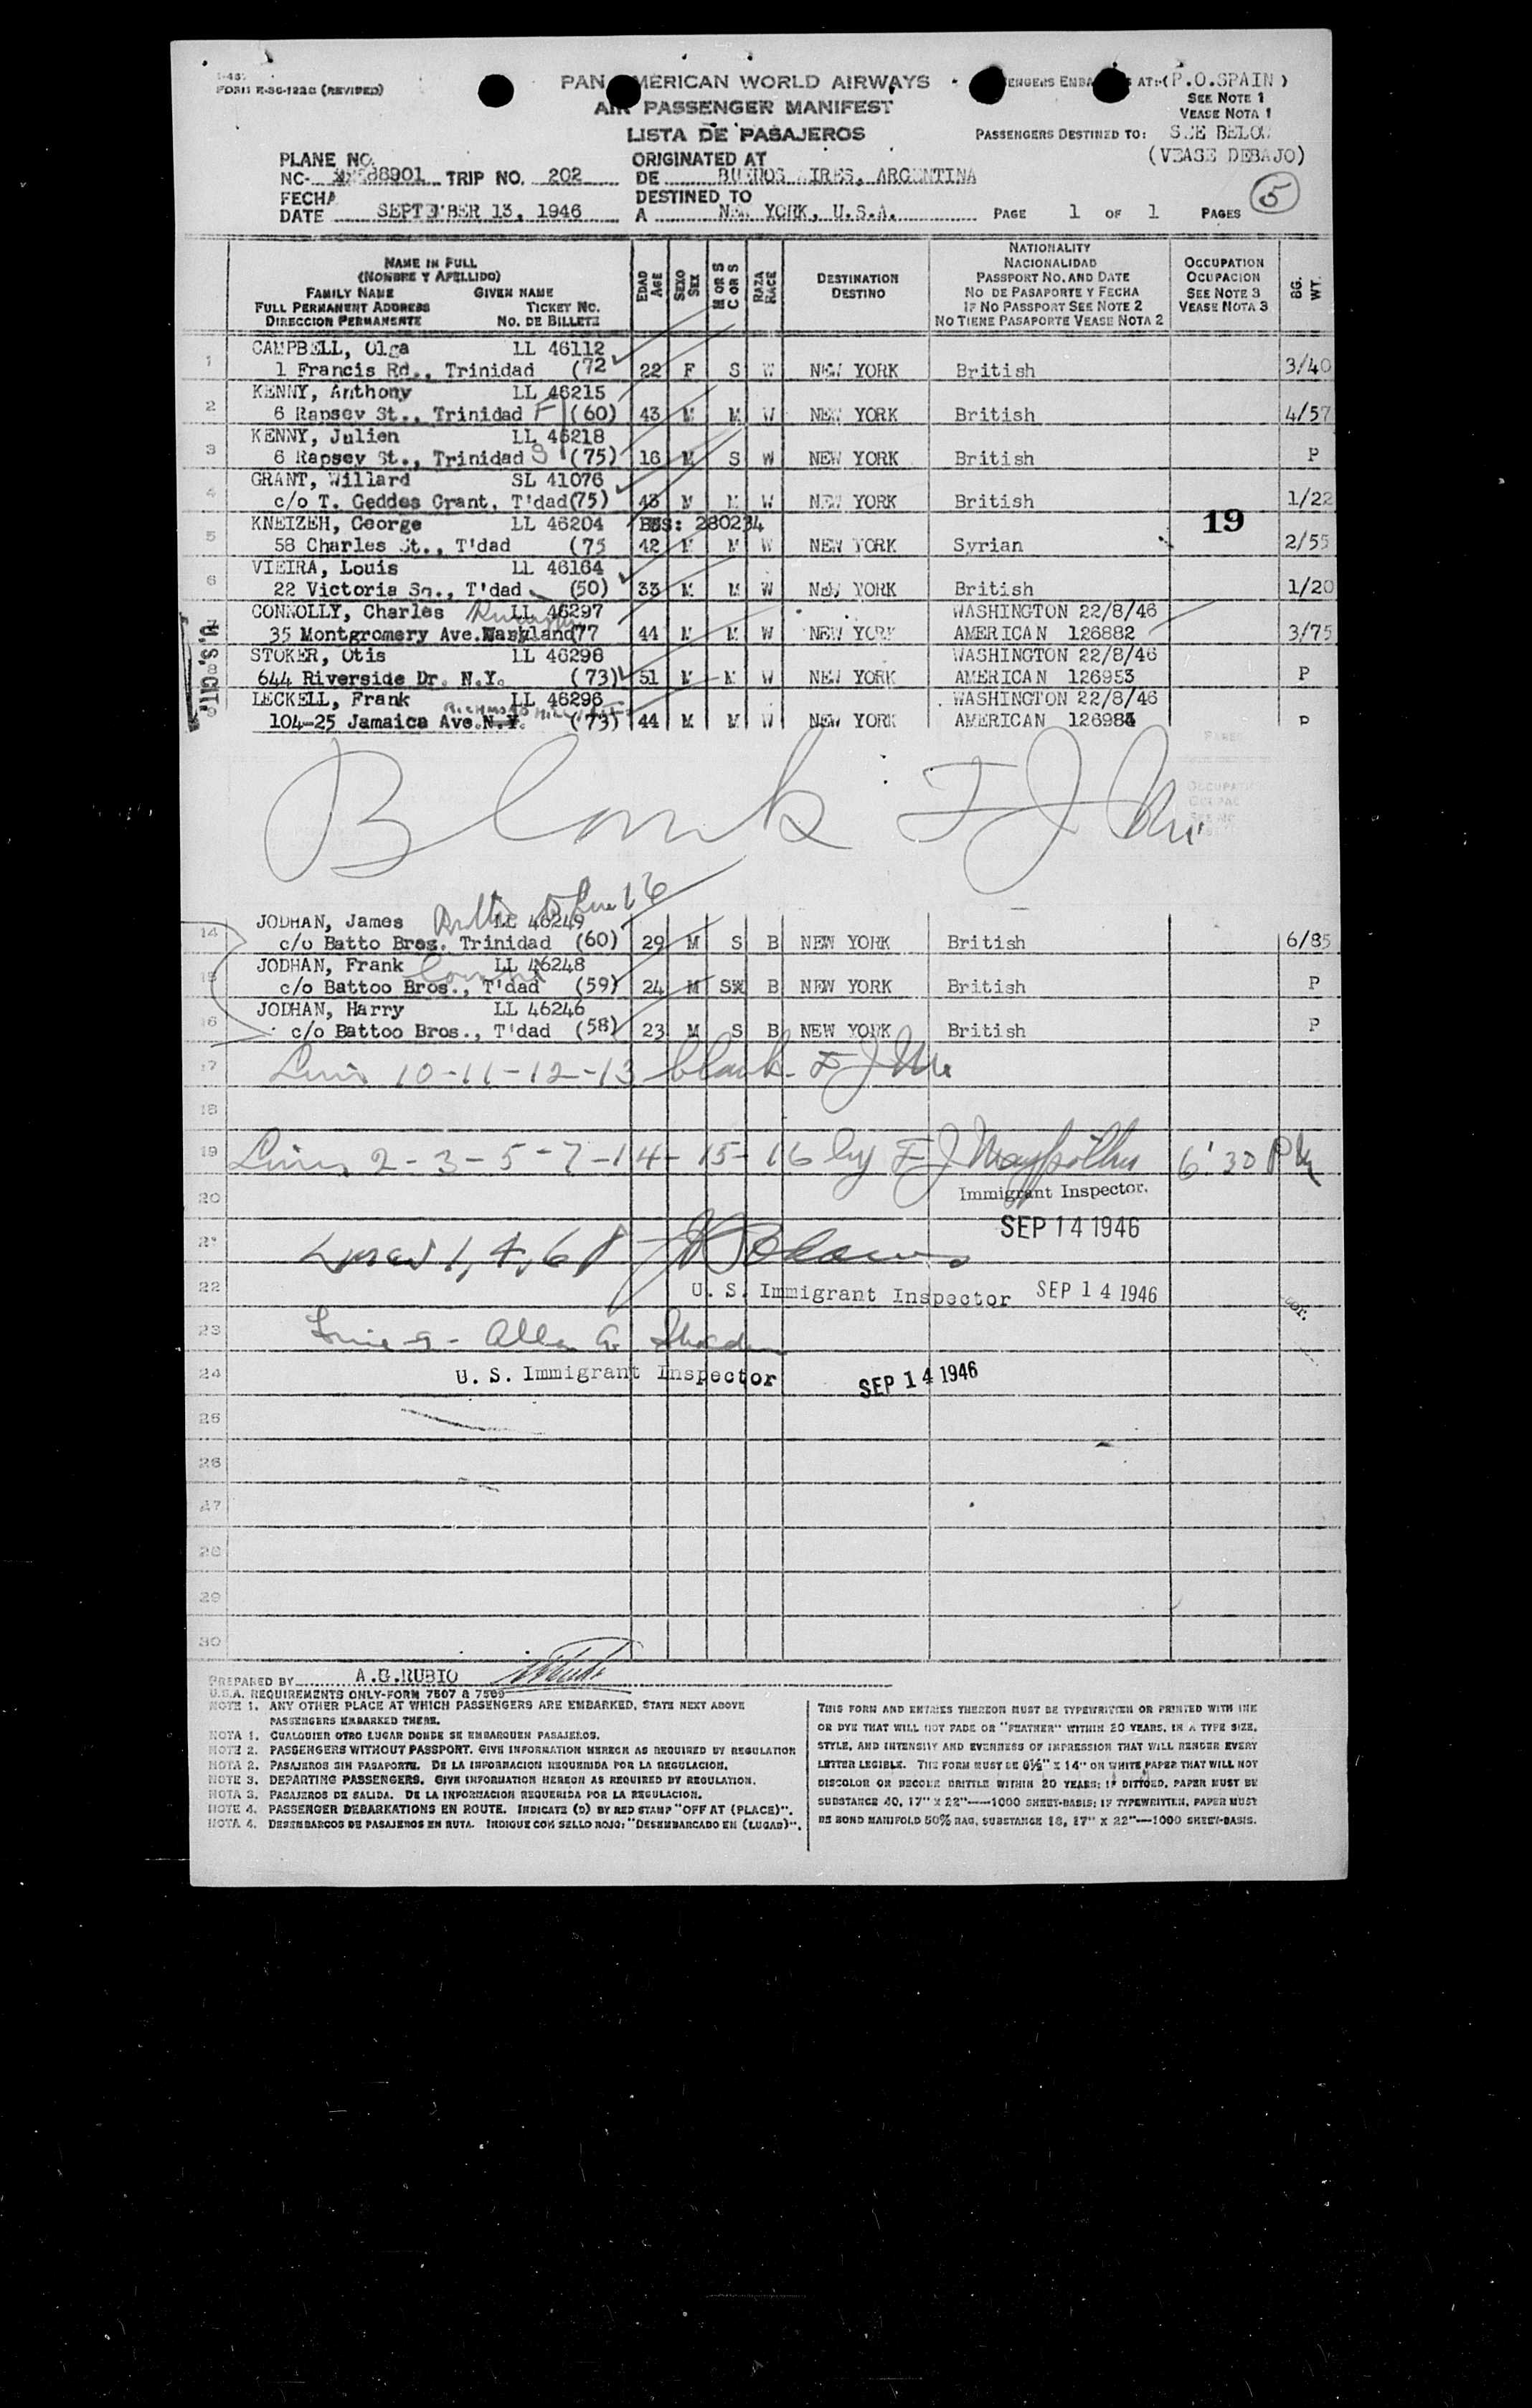 FORM E-SG-122C (REVISED)
PAN AMERICAN WORLD AIRWAYS
AIR PASSENGER MANIFEST
LISTA DE PASAJEROS
AT:(P.O.SPAIN)
SEE NOTE 1
VEASE NOTA 1
PASSENGERS DESTINED TO: SEE BELOW
(VEASE DEBAJO)
PLANE NO.
NC- 88901 TRIP NO. 202
ORIGINATED AT
DE BUENOS AIRES, ARGENTINA
FECHA
DATE SEPTEMBER 13, 1946
DESTINED TO
A NEW YORK, U.S.A.
PAGE 1 OF 1 PAGES
5
NAME IN FULL
(NOMBRE Y APELLIDO)
FAMILY NAME GIVEN NAME
FULL PERMANENT ADDRESS TICKET NO.
DIRECCION PERMANENTE NO. DE BILLETE
EDAD AGE
SEXO SEX
M OR S
C OR S
RAZA RACE
DESTINATION
DESTINO
NATIONALITY
NACIONALIDAD
PASSPORT NO. AND DATE
NO DE PASAPORTE Y FECHA
IF NO PASSPORT SEE NOTE 2
NO TIENE PASAPORTE VEASE NOTA 2
OCCUPATION
OCUPACION
SEE NOTE 3
VEASE NOTA 3
BG. WT.
CAMPBELL, Olga LL 46112
1 1 Francis Rd., Trinidad (72 22 F S W NEW YORK British 3/40
KENNY, Anthony LL 46215
2 6 Rapsey St., Trinidad F (60) 43 M M W NEW YORK British 4/57
KENNY, Julien LL 46218
3 6 Rapsey St., Trinidad S (75) 16 M S W NEW YORK British P
GRANT, Willard SL 41076
4 c/o T. Geddes Grant, T'dad(75) 43 M M W NEW YORK British 1/22
KNEIZEH, George LL 46204 BSS: 280234 19
5 58 Charles St., T'dad (75 42 M M W NEW YORK Syrian 2/55
VIEIRA, Louis LL 46164
6 22 Victoria Sq., T'dad (50) 33 M M W NEW YORK British 1/20
CONNOLLY, Charles LL 46297 WASHINGTON 22/8/46
35 Montgromery Ave.Maryland(77 44 M M W NEW YORK AMERICAN 126882 3/75
STOKER, Otis LL 46298 WASHINGTON 22/8/46
8 644 Riverside Dr. N.Y. (73) 51 M M W NEW YORK AMERICAN 126953 P
LECKELL, Frank LL 46296 WASHINGTON 22/8/46
9 104-25 Jamaica Ave.N.Y. RICHMOND HILL (73) 44 M M W NEW YORK AMERICAN 126984 P
U.S. CIT.
Blank F J
JODHAN, James LL 46249
14 c/o Batto Bros. Trinidad (60) 29 M S B NEW YORK British 6/85
JODHAN, Frank LL 46248
15 c/o Battoo Bros., T'dad (59) 24 M S B NEW YORK British P
JODHAN, Harry LL 46246
16 c/o Battoo Bros., T'dad (58) 23 M S B NEW YORK British P
17 Lines 10-11-12-13 blank F J
18
19 Lines 2-3-5-7-14-15-16 by F J 6:30 PM
Immigrant Inspector.
20
SEP 14 1946
21 Lines 1, 4, 6, 8
22 U. S. Immigrant Inspector SEP 14 1946
23 Line 9 - Allen G.
24 U. S. Immigrant Inspector SEP 14 1946
25
26
27
28
29
30
PREPARED BY A.G.RUBIO
U.S.A. REQUIREMENTS ONLY-FORM 7507 & 7509
NOTE 1. ANY OTHER PLACE AT WHICH PASSENGERS ARE EMBARKED, STATE NEXT ABOVE
PASSENGERS EMBARKED THERE.
NOTA 1. CUALQUIER OTRO LUGAR DONDE SE EMBARQUEN PASAJEROS.
NOTE 2. PASSENGERS WITHOUT PASSPORT. GIVE INFORMATION HEREON AS REQUIRED BY REGULATION
NOTA 2. PASAJEROS SIN PASAPORTE. DE LA INFORMACION REQUERIDA POR LA REGULACION.
NOTE 3. DEPARTING PASSENGERS. GIVE INFORMATION HEREON AS REQUIRED BY REGULATION.
NOTA 3. PASAJEROS DE SALIDA. DE LA INFORMACION REQUERIDA POR LA REGULACION.
NOTE 4. PASSENGER DEBARKATIONS EN ROUTE. INDICATE (D) BY RED STAMP "OFF AT (PLACE)".
NOTA 4. DESEMBARCOS DE PASAJEROS EN RUTA. INDIQUE CON SELLO ROJO: "DESEMBARCADO EN (LUGAR)".
THIS FORM AND ENTRIES THEREON MUST BE TYPEWRITTEN OR PRINTED WITH INK
OR DYE THAT WILL NOT FADE OR "FEATHER" WITHIN 20 YEARS, IN A TYPE SIZE,
STYLE, AND INTENSITY AND EVENNESS OF IMPRESSION THAT WILL RENDER EVERY
LETTER LEGIBLE. THE FORM MUST BE 8½" X 14" ON WHITE PAPER THAT WILL NOT
DISCOLOR OR BECOME BRITTLE WITHIN 20 YEARS; IF DITTOED, PAPER MUST BE
SUBSTANCE 40, 17" X 22"----1000 SHEET-BASIS; IF TYPEWRITTEN, PAPER MUST
BE BOND MANIFOLD 50% RAG, SUBSTANCE 18, 17" X 22"---1000 SHEET-BASIS.